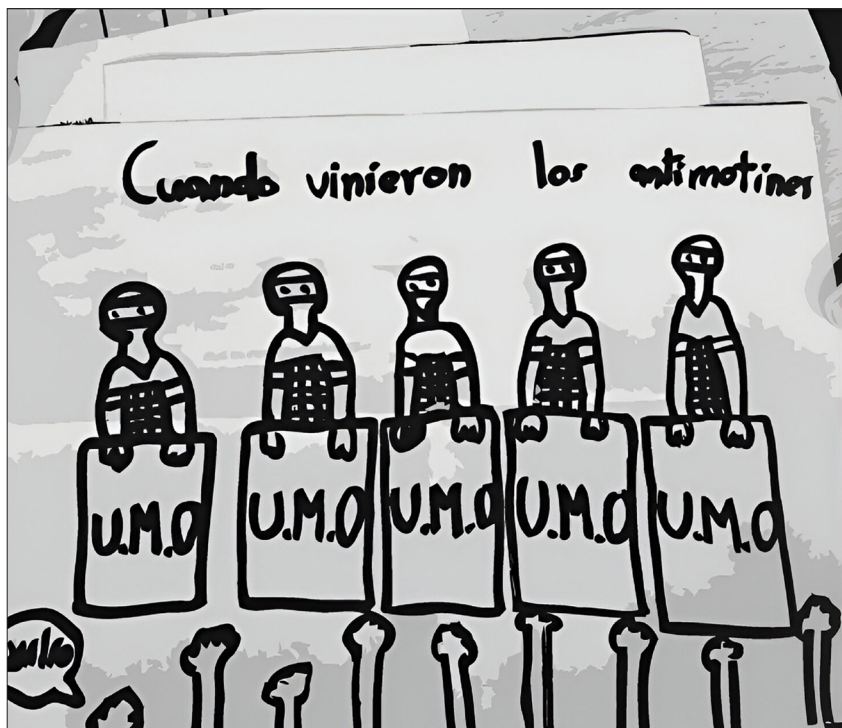 Cuando vinieron los antimotines
U.M.O U.M.O U.M.O U.M.O U.M.O